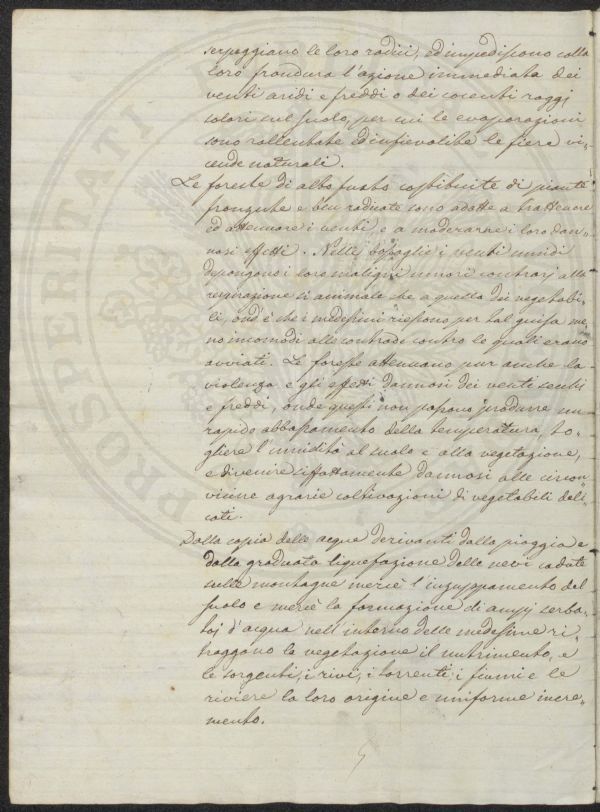 serpeggiano le loro radici, ed impediscono colla
loro frondura l'azione immediata dei
venti aridi e freddi o dei cocenti raggj
solari sul suolo, per cui le evaporazioni
sono rallentate ed infievolite le fiere vi=
cende naturali.
Le foreste di alto fusto costituite di piante
fronzute e ben radicate sono adatte a trattenere
ed attenuare i venti, e a moderarne i loro dan=
nosi effetti. Nelle boscaglie i venti umidi
depongono i loro maligni umori contrarj alla
respirazione sì animale che a quella dei vegetabi=
li, ond'è che i medesimi riescono per tal guisa me=
no incomodi alle contrade contro le quali erano
avviati. Le foreste attenuano pur anche la
violenza e gli effetti dannosi dei venti secchi
e freddi, onde questi non possono produrre un
rapido abbassamento della temperatura, to=
gliere l'umidità al suolo e alla vegetazione,
e divenire siffattamente dannosi alle circon=
vicine agrarie coltivazioni di vegetabili deli=
cati.
Dalla copia delle acque derivanti dalla pioggia e
dalla graduata liquefazione delle nevi cadute
sulle montagne mercè l'inzuppamento del
suolo e mercè la formazione di ampj serba=
toj d'acqua nell'interno delle medesime ri=
traggono la vegetazione il nutrimento, e
le sorgenti, i rivi, i torrenti, i fiumi e le
riviere la loro origine e uniforme incre=
mento.
PROSPERITATI